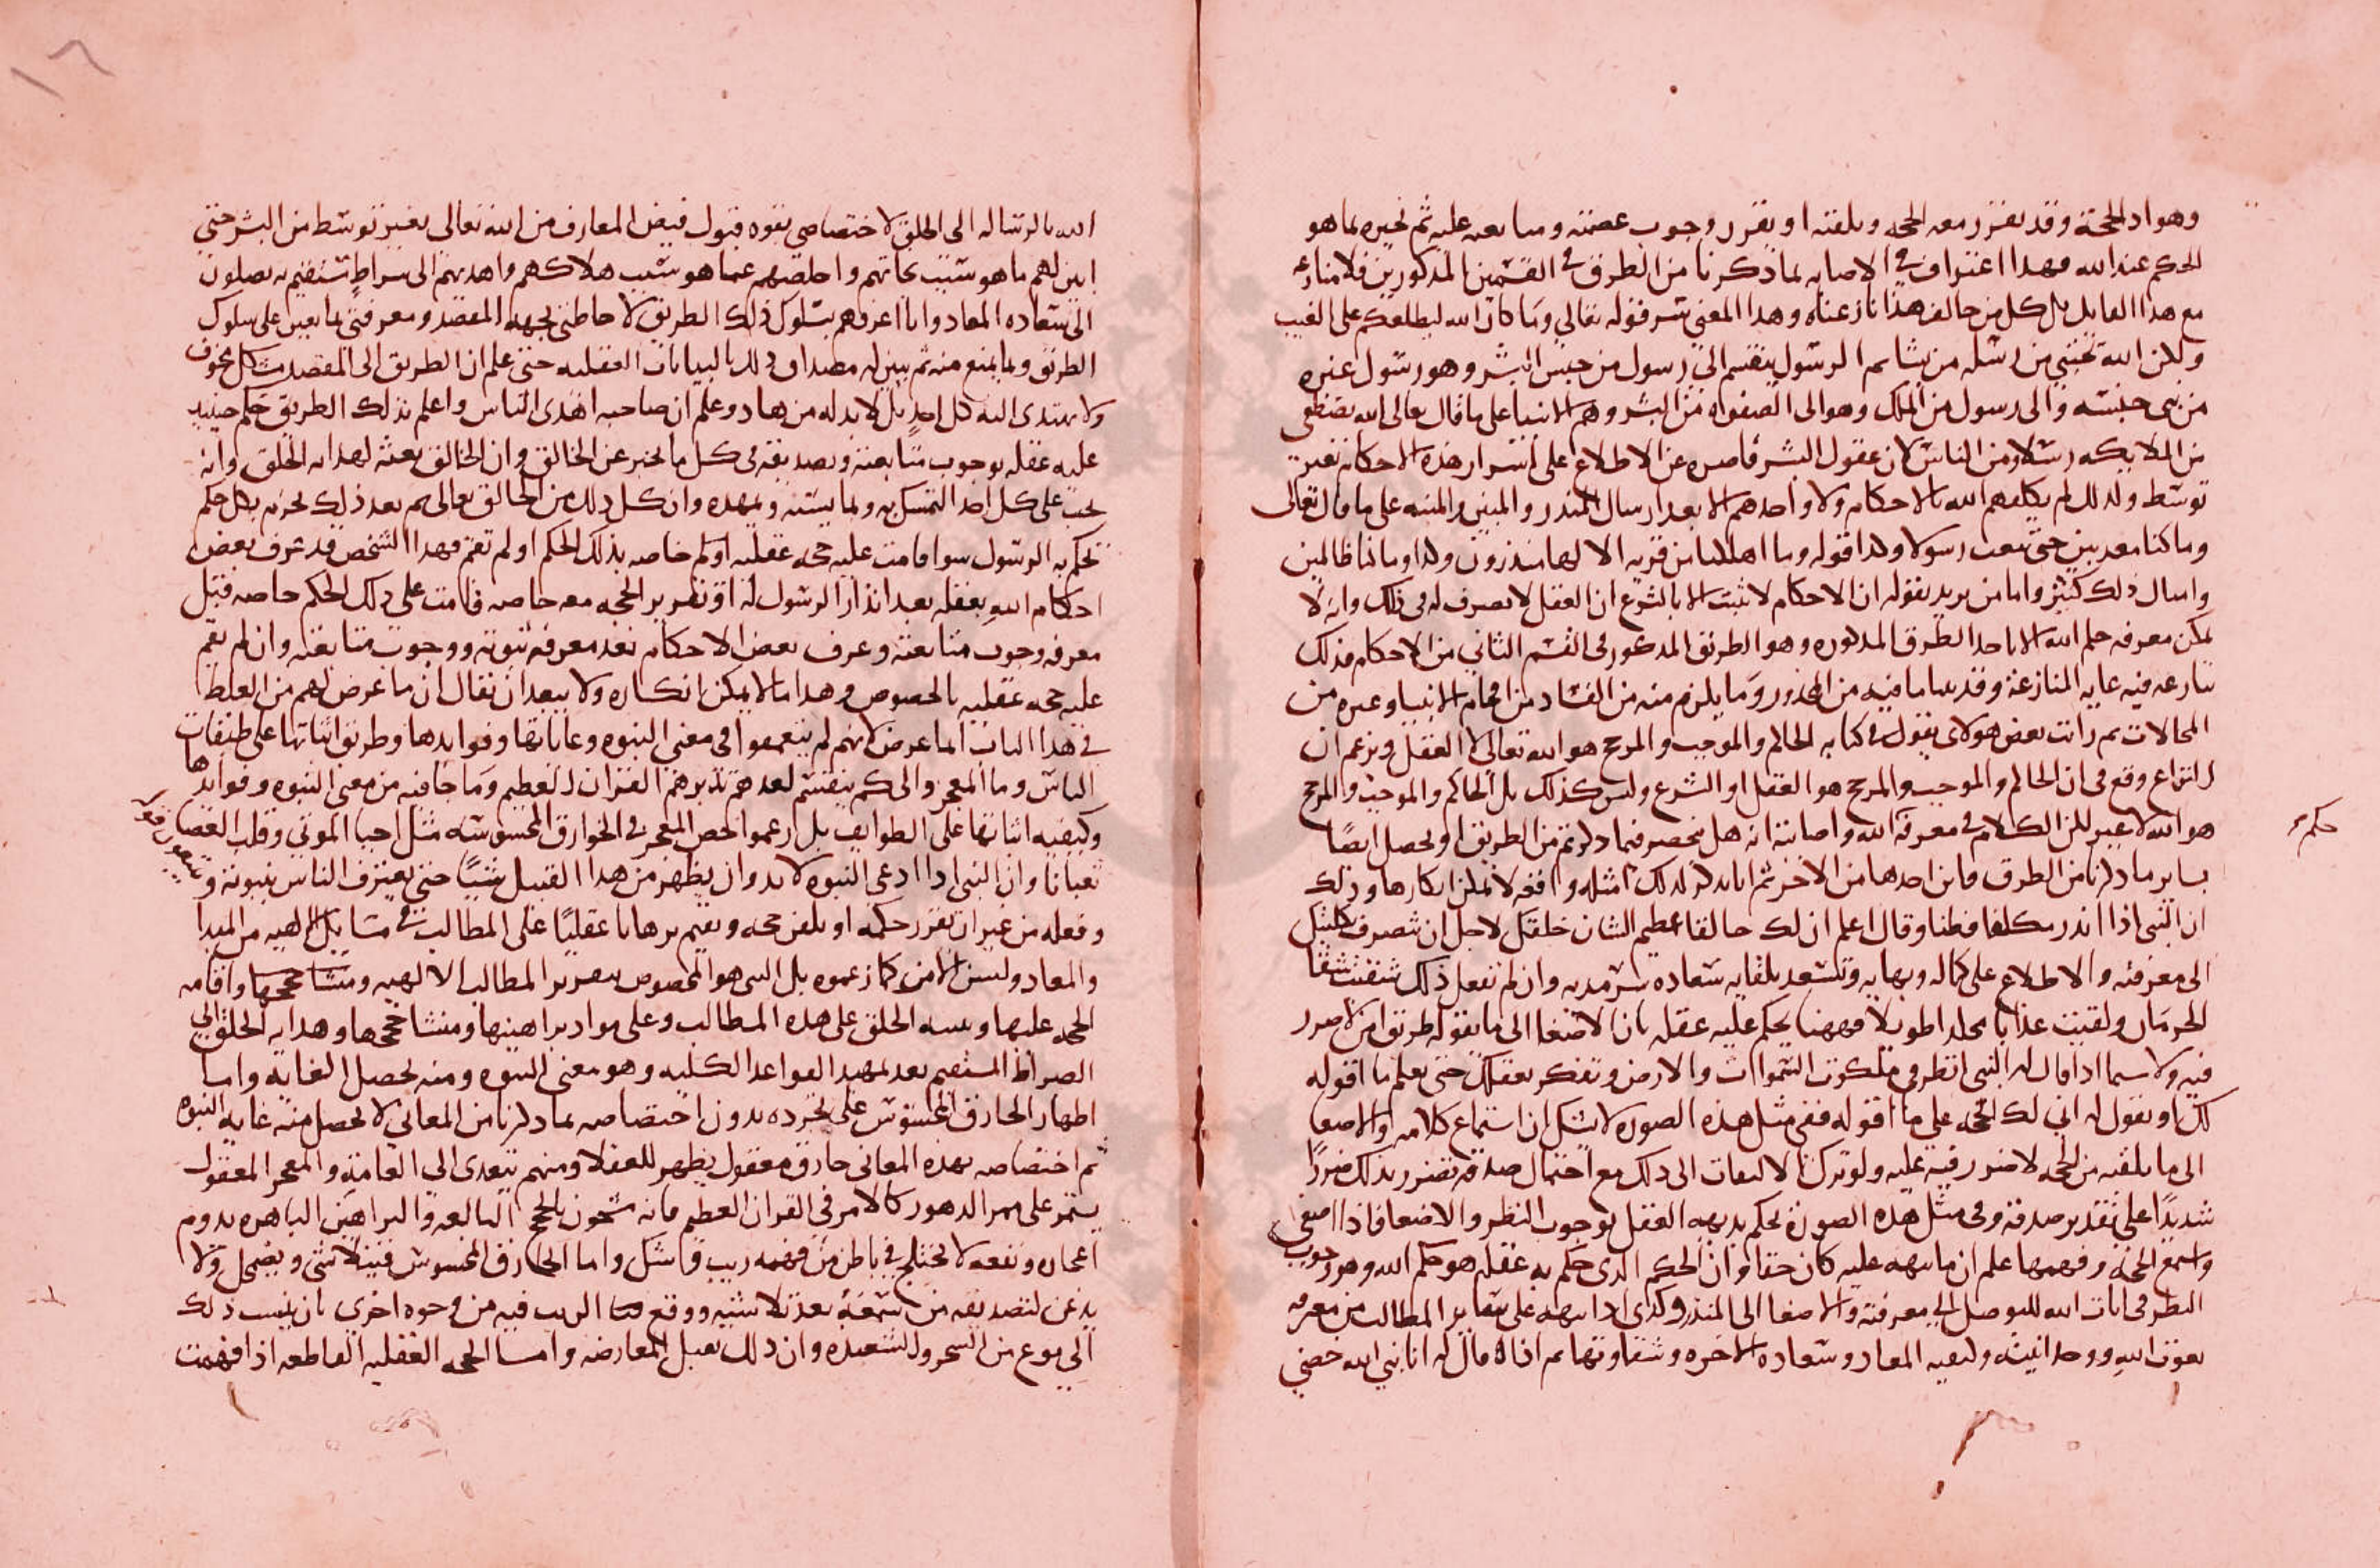 وهو اد الحجة وقد يقرر معه الحجه ويلقنه او يقرر وجوب عصمته ومتابعه عليه ثم يخبره بما هو
الحكم عند الله فهدا اعتراف في الاصابه لما ذكرنا من الطرق في القسمين المذكورين فلا منازعه
مع هدا القايل بل كل من خالف هذا نازعناه وهدا المعني سر قوله تعالي وما كان الله ليطلعكم على الغيب
ولكن الله يجتبي من رسله من يشا ثم الرسول ينقسم الى رسول من جنس البشر وهو رسول غيره
من بني جنسه والى رسول من الملك وهو الى الصفوه من البشر وهم الانبيا على ما قال تعالى الله يصطفي
من الملايكه رسلا ومن الناس لان عقول البشر قاصره عن الاطلاع على اسرار هذه الاحكام بغير
توسط ولدلك لم يكلفهم الله بالاحكام ولا واحدهم الا بعد ارسال المنذر والمبين والمنبه على ما قال تعالى
وما كنا معذبين حتى نبعث رسولا وكدا قوله وما اهلكنا من قريه الا لها منذرون وكدا وما كنا ظالمين
وامثال ذلك كثير واما من يريد بقوله ان الاحكام لا تثبت الا بالشرع ان العقل لا تصرف له في ذلك وانه لا
يمكن معرفه حكم الله الا باحد الطرق المدكوره وهو الطريق المدكور في القسم الثاني من الاحكام فذلك
ننازعه فيه غايه المنازعة وقد بينا ما فيه من المحذور وما يلزم منه من الفساد من افحام الانبيا وغيره من
المحالات ثم رايت بعض هولاى يقول في كتابه الحاكم والموجب والمرجح هو الله تعالى لا العقل ويزعم ان
النزاع وقع في ان الحاكم والموجب والمرجح هو العقل او الشرع وليس كذلك بل الحاكم والموجب والمرجح
هو الله لا غير لكن الكلام في معرفة الله واصابته انه هل ينحصر فيما دكرتم من الطريق او يحصل ايضا
بساير ما دكرنا من الطرق فاين احدهما من الاخر ثم انا ندكر لدلك امثله واقعه لا يمكن انكارها وذلك
ان النبي اذا انذر مكلفا فطنا وقال اعلم ان لك خالقا عظيم الشان خلقك لاجل ان تصرف
الى معرفته والاطلاع على كماله وبهايه وتسعد بلقايه سعاده سرمديه وان لم تفعل ذلك شقيت شقا
الحرمان ولقيت عذابا مخلدا طويلا فههنا يحكم عليه عقله بان الاصغا الى ما يقوله طريق امن لا ضرر
فيه ولا سيما اذا قال له النبي انظر في ملكوت السموات والارض وتفكر بعقلك حتى تعلم ما اقوله
لك او يقول له اني لك الحجه على ما اقوله ففي مثل هذه الصوره لا يشك ان استماع كلامه او الاصغا
الى ما يلقيه من الحجه لا ضرر فيه عليه ولو ترك الالتفات الى دلك مع احتمال صدقه تضرر بذلك ضررا
شديدا على تقدير صدقه وفي مثل هذه الصوره يحكم بديهه العقل بوجوب النظر والاصغا فاذا اصغى
واستمع الحجه وفهمها علم ان ما نبهه عليه كان حقا وان الحكم الدى حكم به عقله هو حكم الله وهو وجوب
النظر في ايات الله للتوصل الى معرفته والاصغا الى المنذر وكدى ادا نبهه على ساير المطالب من معرفه
الله ووحدانيته وكيفيه المعاد وسعاده الاخره وشقاوتها ثم اذا قال له انا نبي الله خصني
حكم
١٦
الله بالرساله الى الخلق لاختصاصي بقوه قبول فيض المعارف من الله تعالى بغير توسط من البشر حتي
ابين لهم ما هو سبب نجاتهم واخلصهم عما هو سبب هلاكهم واهديهم الى سراط مستقيم به يصلون
الى سعاده المعاد وانا اعرفهم بسلوك ذلك الطريق لاحاطتي بجهه المقصد ومعرفتي بما يعين على سلوك
الطريق وبما يمنع منه ثم يبين له مصداق ذلك بالبيانات العقليه حتى علم ان الطريق الى المقصد مشكل مخوف
ولا يهتدى اليه كل احد بل لا بد له من هاد وعلم ان صاحبه اهدى الناس واعلم بذلك الطريق حكم حينيد
عليه عقله بوجوب متابعته وتصديقه في كل ما يخبر عن الخالق وان الخالق بعثه لهدايه الخلق وانه
يجب على كل احد التمسك به وبما يسنه ويمهده وان كل ذلك من الخالق تعالى ثم بعد ذلك يجزم بكل حكم
يحكم به الرسول سوا قامت عليه حجه عقليه اولم خاصه بذلك الحكم او لم تقم فهدا الشخص قد عرف بعض
احكام الله بعقله بعد انذار الرسول له او تقرير الحجه معه خاصه قامت على دلك الحكم خاصه قبل
معرفه وجوب متابعته وعرف بعض الاحكام بعد معرفه نبوته ووجوب متابعته وان لم تقم
عليه حجه عقليه بالخصوص وهدا مما لا يمكن انكاره ولا يبعد ان يقال ان ما عرض لهم من الغلط
في هدا الباب انما عرض لانهم لم يتعمقوا في معنى النبوه وغاياتها وفوايدها وطريق اثباتها على طبقات
الناس وما المعجز والى كم ينقسم لعدم تدبرهم القران العظيم وما جا فيه من معنى النبوه وفوائدها
وكيفيه اثباتها على الطوايف بل زعموا المعجز في الخوارق المحسوسه مثل احيا الموتى وقلب العصا
ثعبانا وان النبي اذا ادعى النبوه لا بد وان يظهر من هدا القبيل شيئا حتى يعترف الناس بنبوته و
وفعله من غير ان يقرر حكمه او يلقن حجه ويقيم برهانا عقليا على المطالب في مسايل الالهيه من المبدا
والمعاد وليس الامر كما زعموه بل النبي هو المخصوص بتقرير المطالب الالهيه ومنشا حججها واقامه
الحجه عليها وتنبيه الخلق على هده المطالب وعلى مواد براهينها ومنشا حججها وهدايه الخلق الى
الصراط المستقيم بعد تمهيد القواعد الكليه وهو معنى النبوه ومنه يحصل الغايه واما
اظهار الخارق المحسوس على تجرده بدون اختصاصه بما دكرنا من المعاني لا يحصل منه غايه النبوه
ثم اختصاصه بهذه المعاني خارق معقول يظهر للعقلا ومنهم يتعدى الى العامه والمعجز المعقول
يستمر على ممر الدهور كالامر في القران العظيم فانه مشحون بالحجج البالغه والبراهين الباهره يدوم
اعجازه ونفعه لا يختلج في باطن من فهمه ريب شك واما الخارق المحسوس فيتلاشى ويضمحل ولا
يدعن لتصديقه من سمعه بعد تلاشيه ووقع الريب فيه من وجوه اخرى بان ينسب ذلك
الى نوع من السحر والشعبده وان ذلك يقبل المعارضه واما الحجه العقليه القاطعه اذا فهمت